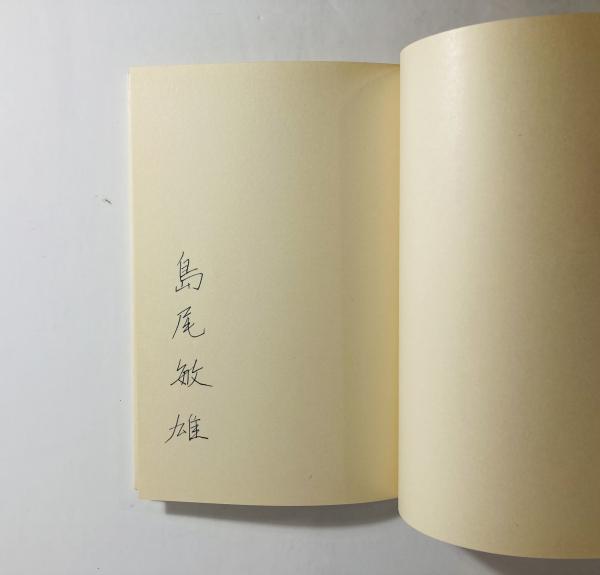 島尾敏雄